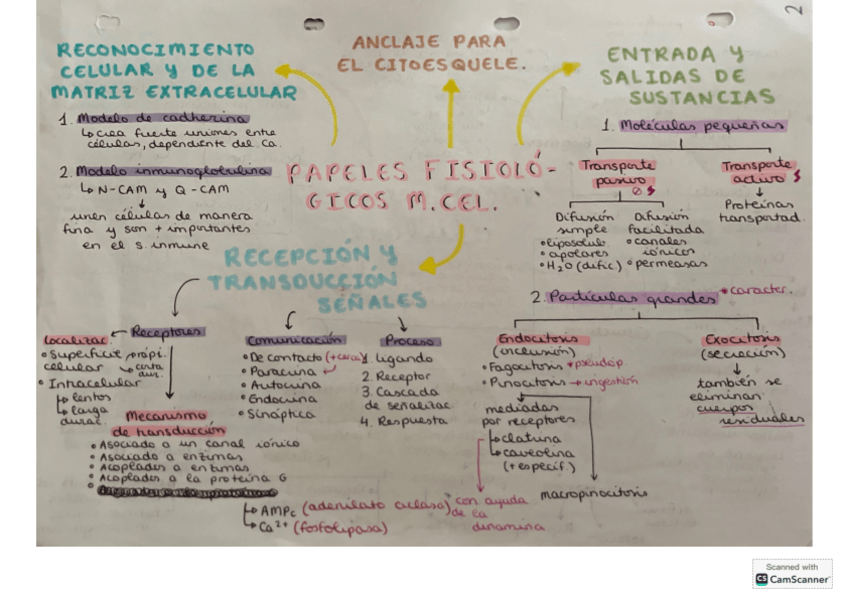 2
RECONOCIMIENTO
CELULAR Y DE LA
MATRIZ EXTRACELULAR
1. Modelo de cadherina
↳ crea fuerte uniones entre
células, dependiente del Ca.
2. Modelo inmunoglobulina
↳ N-CAM y Q-CAM
unen células de manera
fina y son + importantes
en el s. inmune
ANCLAJE PARA
EL CITOESQUELE.
ENTRADA Y
SALIDAS DE
SUSTANCIAS
PAPELES FISIOLÓ-
GICOS M.CEL.
1. Moléculas pequeñas
Transporte
pasivo
Difusión
simple
• liposolub.
• apolares
• H2O (dific)
Difusión
facilitada
• canales
iónicos
• permeasas
Transporte
activo
Proteínas
transportad.
RECEPCIÓN Y
TRANSDUCCIÓN
SEÑALES
Receptores
Localizac.
• Superficie
celular
rápi.
corta
dur.
• Intracelular
↳ lentos
↳ larga
durac.
Mecanismo
de transducción
• Asociado a un canal iónico
• Asociado a enzimas
• Acoplados a enzimas
• Acoplados a la proteína G
↳ AMPc (adenilato ciclasa)
↳ Ca2+ (fosfolipasa)
Comunicación
• De contacto (+cerca)
• Paracrina
• Autocrina
• Endocrina
• Sináptica
Proceso
1. ligando
2. Receptor
3. Cascada
de señalizac.
4. Respuesta
2. Partículas grandes *caracter.
Endocitosis
(inclusión)
• Fagocitosis *pseudóp.
• Pinocitosis → ingestión
mediadas
por receptores
↳ clatrina
↳ caveolina
(+ específ.)
con ayuda
de la
dinamina
macropinocitosis
Exocitosis
(secreción)
también se
eliminan
cuerpos
residuales
Scanned with
CS CamScanner